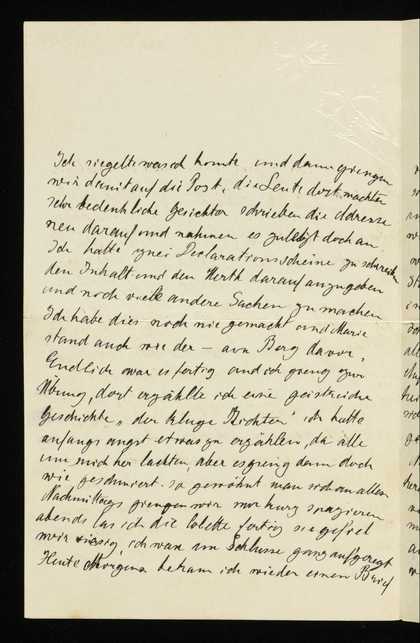 Ich siegelte was ich konnte und dann giengen
wir damit auf die Post, die Leute dort machten
sehr bedenkliche Gesichter schrieben die Adresse
neu darauf und nahmen es zuletzt doch an
Ich hatte zwei Declarationsscheine zu schreiben
den Inhalt und den Werth darauf anzugeben
und noch viele andere Sachen zu machen
Ich habe dies noch nie gemacht und Marie
stand auch wie der – am Berg davor,
Endlich war es fertig und ich gieng zur
Übung, dort erzählte ich eine geistreiche
Geschichte „der kluge Richter" ich hatte
anfangs angst etwas zu erzählen, da alle
um mich her lachten, aber es gieng dann doch
wie geschmiert. so gewöhnt man sich an allem
Nachmittags giengen wir nur kurz spazieren
abends las ich die fertig sie gefiel
mir riesig, ich war am Schlusse ganz aufgeregt
Heute Morgen bekam ich wieder einen Brief